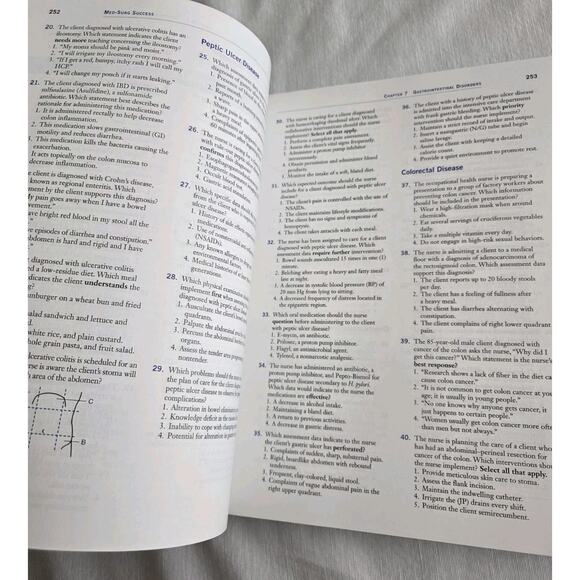 252 MED-SURG SUCCESS
20. The client diagnosed with ulcerative colitis has an
ileostomy. Which statement indicates the client
needs more teaching concerning the ileostomy?
1. "My stoma should be pink and moist."
2. "I will irrigate my ileostomy every morning."
3. "If I get a red, bumpy, itchy rash I will call my
HCP."
4. "I will change my pouch if it starts leaking."
21. The client diagnosed with IBD is prescribed
sulfasalazine (Asulfidine), a sulfonamide
antibiotic. Which statement best describes the
rationale for administering this medication?
1. It is administered rectally to help decrease
colon inflammation.
2. This medication slows gastrointestinal (GI)
motility and reduces diarrhea.
3. This medication kills the bacteria causing the
exacerbation.
It acts topically on the colon mucosa to
decrease inflammation.
client is diagnosed with Crohn's disease,
known as regional enteritis. Which
ment by the client supports this diagnosis?
y pain goes away when I have a bowel
vement."
ave bright red blood in my stool all the
e episodes of diarrhea and constipation."
bdomen is hard and rigid and I have
diagnosed with ulcerative colitis
d a low-residue diet. Which meal
dicates the client understands the
ng?
mburger on a wheat bun and fried
salad sandwich and lettuce and
white rice, and plain custard.
hole grain pasta, and fruit salad.
lcerative colitis is scheduled for an
rse is aware the client's stoma will
area of the abdomen?
C
B
Peptic Ulcer Disease
25. Which
diagnosis of
1.
2.
3. Sharp pain
4. Complaints of
60 minutes
26. The nurse is
with rule-out
confirms this
1. Esophagogastro
2. Magnetic
3. Occult blood
4. Gastric acid
27. Which specific data should
from the client who
ulcer disease?
1. History of side effects
medications.
2. Use of nonsteroidal
(NSAIDs).
3. Any known allergies to
environmental
4. Medical histories of at least
generations.
28. Which physical examination
implement first when assessing
diagnosed with peptic ulcer
1. Auscultate the client's
quadrants.
2. Palpate the abdominal
3. Percuss the abdominal
organs.
4. Assess the tender area
nonten
29. Which problems should the nurse
the plan of care for the client
peptic ulcer disease to observe
complications?
1. Alteration in bowel elimination
2. Knowledge deficit in the
3. Inability to cope with
4. Potential for alteration in
CHAPTER 7 GASTROINTESTINAL DISORDERS 253
30. The nurse is caring for a client diagnosed
with hemorrhaging duodenal ulcer. Which
collaborative interventions should the nurse
implement? Select all that apply.
1. Perform a complete pain assessment.
2. Assess the client's vital signs frequently.
3. Administer a proton pump inhibitor
intravenously.
4. Obtain permission and administer blood
products.
5. Monitor the intake of a soft, bland diet.
31. Which expected outcome should the nurse
include for a client diagnosed with peptic ulcer
disease?
1. The client's pain is controlled with the use of
NSAIDs.
2. The client maintains lifestyle modifications.
3. The client has no signs and symptoms of
hemoptysis.
4. The client takes antacids with each meal.
32. The nurse has been assigned to care for a client
diagnosed with peptic ulcer disease. Which
assessment data require further intervention?
1. Bowel sounds auscultated 15 times in one (1)
minute.
2. Belching after eating a heavy and fatty meal
late at night.
3. A decrease in systolic blood pressure (BP) of
20 mm Hg from lying to sitting.
4. A decreased frequency of distress located in
the epigastric region.
33. Which oral medication should the nurse
question before administering to the client
with peptic ulcer disease?
1. E-mycin, an antibiotic.
2. Prilosec, a proton pump inhibitor.
3. Flagyl, an antimicrobial agent.
4. Tylenol, a nonnarcotic analgesic.
34. The nurse has administered an antibiotic, a
proton pump inhibitor, and Pepto-Bismol for
peptic ulcer disease secondary to H. pylori.
Which data would indicate to the nurse the
medications are effective?
1. A decrease in alcohol intake.
2. Maintaining a bland diet.
3. A return to previous activities.
4. A decrease in gastric distress.
35. Which assessment data indicate to the nurse
the client's gastric ulcer has perforated?
1. Complaints of sudden, sharp, substernal pain.
2. Rigid, boardlike abdomen with rebound
tenderness.
3. Frequent, clay-colored, liquid stool.
4. Complaints of vague abdominal pain in the
right upper quadrant.
36. The client with a history of peptic ulcer disease
is admitted into the intensive care department
with frank gastric bleeding. Which priority
intervention should the nurse implement?
1. Maintain a strict record of intake and output.
2. Insert a nasogastric (N/G) tube and begin
saline lavage.
3. Assist the client with keeping a detailed
calorie count.
4. Provide a quiet environment to promote rest.
Colorectal Disease
37. The occupational health nurse is preparing a
presentation to a group of factory workers about
preventing colon cancer. Which information
should be included in the presentation?
1. Wear a high-filtration mask when around
chemicals.
2. Eat several servings of cruciferous vegetables
daily.
3. Take a multiple vitamin every day.
4. Do not engage in high-risk sexual behaviors.
38. The nurse is admitting a client to a medical
floor with a diagnosis of adenocarcinoma of
the rectosigmoid colon. Which assessment data
support this diagnosis?
1. The client reports up to 20 bloody stools
per day.
2. The client has a feeling of fullness after
a heavy meal.
3. The client has diarrhea alternating with
constipation.
4. The client complains of right lower quadrant
pain.
39. The 85-year-old male client diagnosed with
cancer of the colon asks the nurse, "Why did I
get this cancer?" Which statement is the nurse's
best response?
1. "Research shows a lack of fiber in the diet can
cause colon cancer."
2. "It is not common to get colon cancer at your
age; it is usually in young people."
3. "No one knows why anyone gets cancer, it
just happens to certain people."
4. "Women usually get colon cancer more often
than men but not always."
40. The nurse is planning the care of a client who
has had an abdominal–perineal resection for
cancer of the colon. Which interventions should
the nurse implement? Select all that apply.
1. Provide meticulous skin care to stoma.
2. Assess the flank incision.
3. Maintain the indwelling catheter.
4. Irrigate the (JP) drains every shift.
5. Position the client semirecumbent.